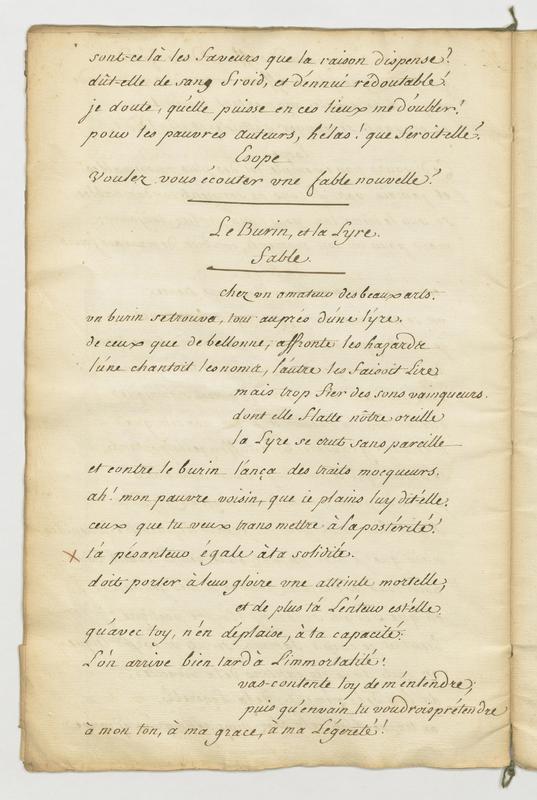 sont-ce là les faveurs que la raison dispense?
dût-elle de sang froid, et d'ennui redoutable!
je doute, qu'elle puisse en ces lieux me doubler!
pour les pauvres auteurs, hélas! que seroit-elle?
Esope
Voulez vous écouter une fable nouvelle?
Le Burin, et la Lyre.
fable.
chez un amateur des beaux arts.
un burin se trouva, tout auprés d'une lyre.
de ceux que de bellonne, affronte les hazards
l'une chantoit les noms, l'autre les faisoit lire
mais trop fier des sons vainqueurs.
dont elle flatte nôtre oreille
la Lyre se crut sans pareille
et contre le burin lança des traits mocqueurs.
ah! mon pauvre voisin, que ie plains luy dit-elle,
ceux que tu veux transmettre à la postérité!
x ta pésanteur égale à ta solidité.
doit porter à leur gloire une atteinte mortelle,
et de plus ta lenteur est-elle,
qu'avec toy, n'en déplaise, à ta capacité,
l'on arrive bien tard à l'immortalité!
vas-contente toy de m'entendre;
puis qu'envain tu voudrois prétendre
à mon ton, à ma grace, à ma légèreté!